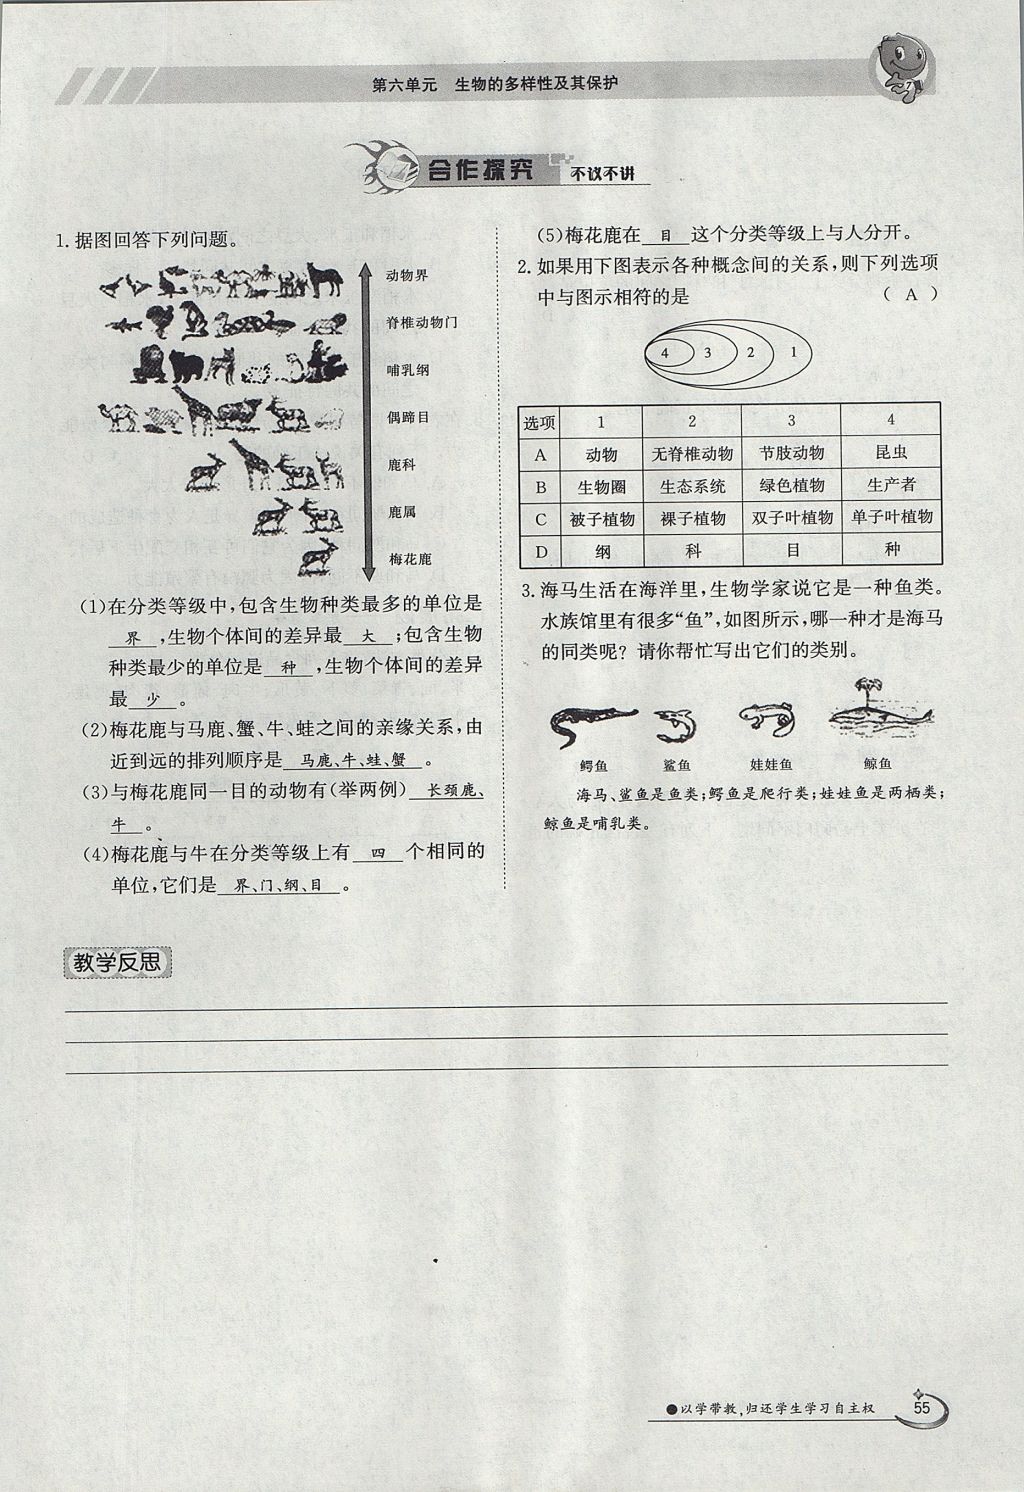 第六单元 生物的多样性及其保护
合作探究 不议不讲
1.据图回答下列问题。
动物界
脊椎动物门
哺乳纲
偶蹄目
鹿科
鹿属
梅花鹿
(1)在分类等级中,包含生物种类最多的单位是
界,生物个体间的差异最大;包含生物
种类最少的单位是种,生物个体间的差异
最少。
(2)梅花鹿与马鹿、蟹、牛、蛙之间的亲缘关系,由
近到远的排列顺序是马鹿、牛、蛙、蟹。
(3)与梅花鹿同一目的动物有(举两例)长颈鹿、
牛。
(4)梅花鹿与牛在分类等级上有四个相同的
单位,它们是界、门、纲、目。
(5)梅花鹿在目这个分类等级上与人分开。
2.如果用下图表示各种概念间的关系,则下列选项
中与图示相符的是 ( A )
4 3 2 1
选项 1 2 3 4
A 动物 无脊椎动物 节肢动物 昆虫
B 生物圈 生态系统 绿色植物 生产者
C 被子植物 裸子植物 双子叶植物 单子叶植物
D 纲 科 目 种
3.海马生活在海洋里,生物学家说它是一种鱼类。
水族馆里有很多“鱼”,如图所示,哪一种才是海马
的同类呢?请你帮忙写出它们的类别。
鳄鱼 鲨鱼 娃娃鱼 鲸鱼
海马、鲨鱼是鱼类;鳄鱼是爬行类;娃娃鱼是两栖类;
鲸鱼是哺乳类。
教学反思
●以学带教,归还学生学习自主权 55